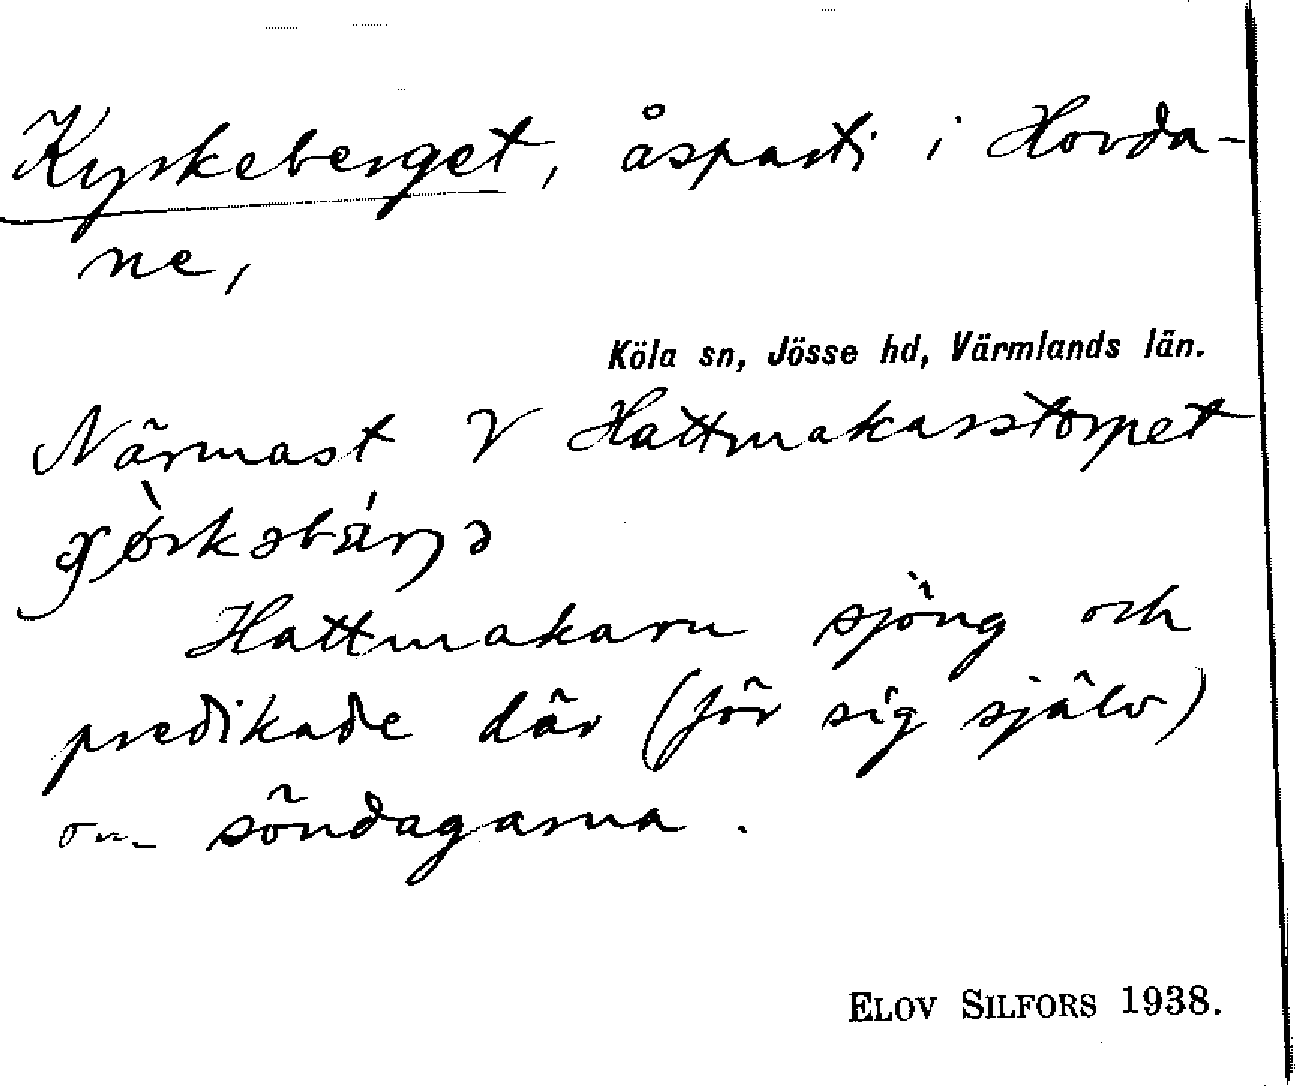 Kyrkeberget, åsparti i Horda-
ne,
Köla sn, Jösse hd, Värmlands län.
Närmast V Hattmakarstorpet
Hattmakarn sjöng och
predikade där (för sig själv)
om söndagarna.
ELOV SILFORS 1938.